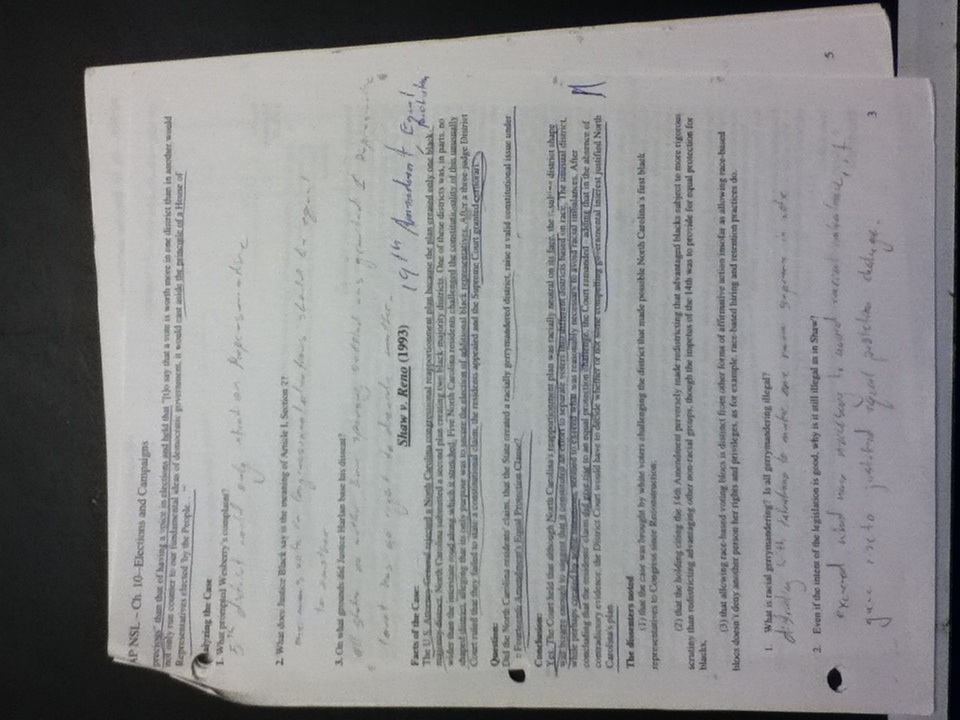 AP NSL – Ch. 10--Elections and Campaigns
precious" than that of having a voice in elections and held that "[t]o say that a vote is worth more in one district than in another would
not only run counter to our fundamental ideas of democratic government, it would cast aside the principle of a House of
Representatives elected 'by the People. . ."
alyzing the Case
1. What prompted Wesberry's complaint?
5th district could only
2. What does Justice Black say is the meaning of Article I, Section 2?
one mans vote in congressional elections should be equal
to another
3. On what grounds did Justice Harlan base his dissent?
all states no matter how sparsely settled was granted 1
court has no right to decide matter.
Shaw v. Reno (1993)
19th Amendment Equal
Protection
Facts of the Case:
The U.S. Attorney General rejected a North Carolina congressional reapportionment plan because the plan created only one black-
majority district. North Carolina submitted a second plan creating two black-majority districts. One of these districts was, in parts, no
wider than the interstate road along which it stretched. Five North Carolina residents challenged the constitutionality of this unusually
shaped district, alleging that its only purpose was to secure the election of additional black representatives. After a three-judge District
Court ruled that they failed to state a constitutional claim, the residents appealed and the Supreme Court granted certiorari.
Question:
Did the North Carolina residents' claim, that the State created a racially gerrymandered district, raise a valid constitutional issue under
Fourteenth Amendment's Equal Protection Clause?
Conclusion:
Yes. The Court held that although North Carolina's reapportionment plan was racially neutral on its face, the resulting district shape
was bizarre enough to suggest that it constituted an effort to separate voters into different districts based on race. The unusual district,
while perhaps created by noble intentions, seemed to exceed what was reasonably necessary to avoid racial imbalances. After
concluding that the residents' claim did give rise to an equal protection challenge, the Court remanded – adding that in the absence of
contradictory evidence, the District Court would have to decide whether or not some compelling governmental interest justified North
Carolina's plan.
The dissenters noted
(1) that the case was brought by white voters challenging the district that made possible North Carolina's first black
representatives to Congress since Reconstruction;
(2) that the holding citing the 14th Amendment perversely made redistricting that advantaged blacks subject to more rigorous
scrutiny than redistricting advantaging other non-racial groups, though the impetus of the 14th was to provide for equal protection for
blacks.
(3) that allowing race-based voting blocs is distinct from other forms of affirmative action insofar as allowing race-based
blocs doesn't deny another person her rights and privileges, as for example, race-based hiring and retention practices do.
1. What is racial gerrymandering? Is all gerrymandering illegal?
districting with intentions to make one race supreme in vote
2. Even if the intent of the legislation is good, why is it still illegal as in Shaw?
exceeed what was necessary to avoid racial imbalance, it
gave rise to justified equal protection challenge.
3
5